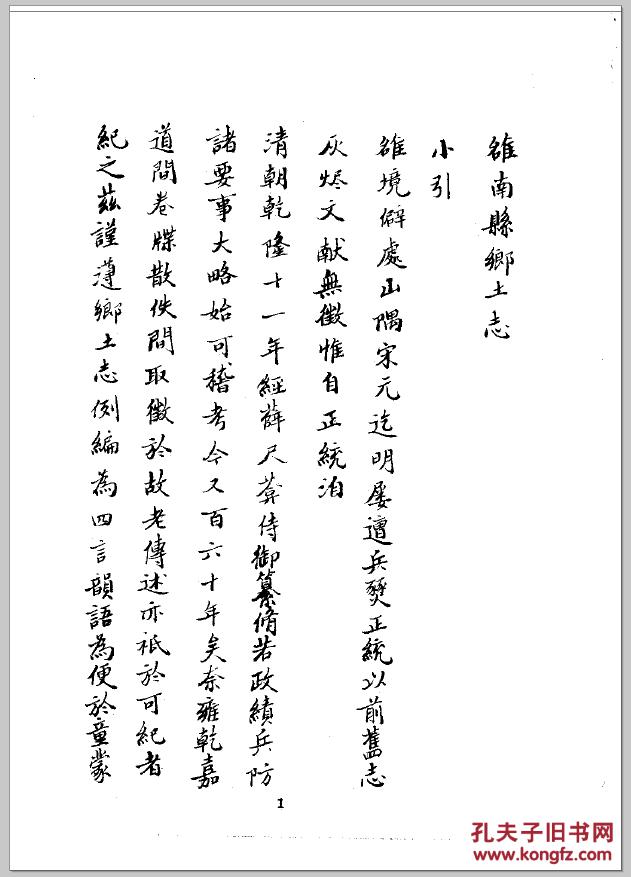 雒南縣鄉土志
小引
雒境僻處山隅宋元迄明屢遭兵燹正統以前舊志
灰烬文献無徵惟自正統洎
清朝乾隆十一年經薛尺莽侍御纂脩若政績兵防
諸要事大略始可稽考今又百六十年矣奈雍乾嘉
道間卷牒散佚間取徵於故老傳述亦祇於可紀者
紀之茲謹遵鄉土志例編為四言韻語為便於童蒙
1
孔夫子旧书网
www.kongfz.com